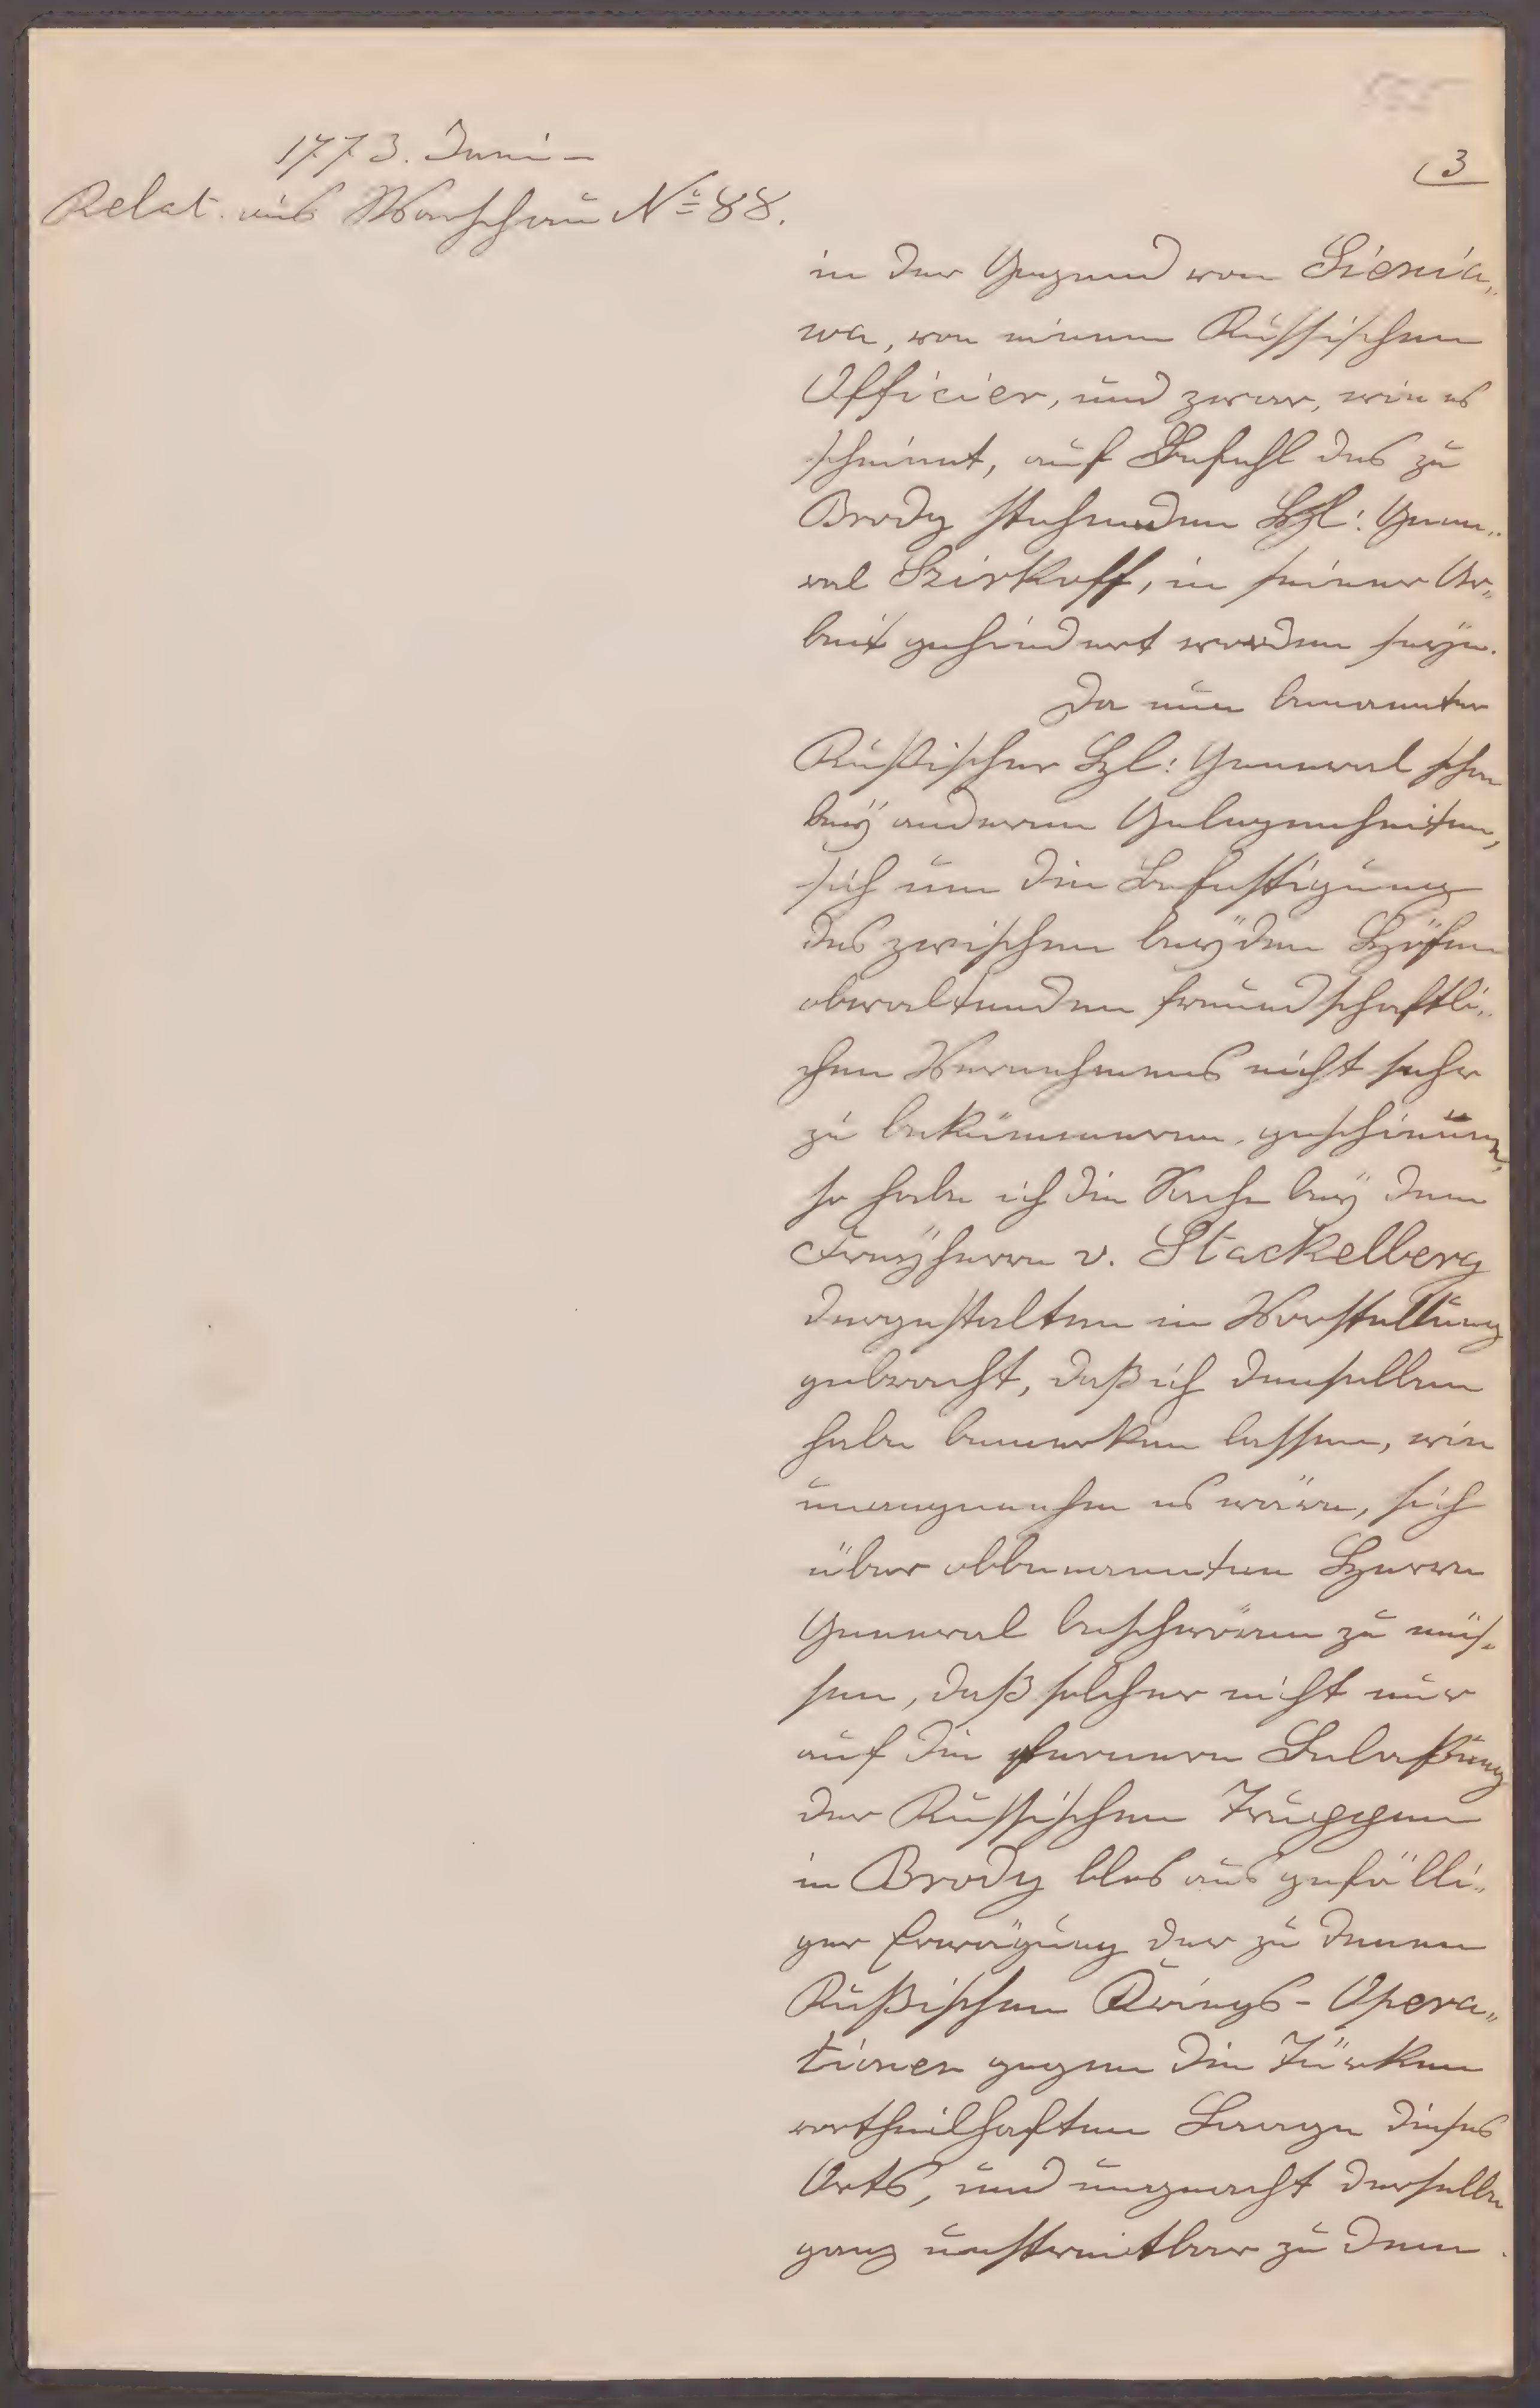 555
1773. Juni –
3
Relat. aus Warschau No 88.
in der Gegend von Sienia„
wa, von einem Russischen
Officier, und zwar, wie es
scheinet, auf Befehl des zu
Brody stehenden H: Gene„
ral Szirkoff, in seiner Ar„
beit gehindert worden seyn.
Da nun benannter
Rußischer H: General schon
bey anderen Gelegenheiten,
sich um die Befestigung
des zwischen beyden Höfen
obwaltenden freundschaftli„
chen Vernehmens nicht sehr
zu bekümmeren, geschienen,
so habe ich die Sache bey dem
Freyherrn v. Stackelberg
dergestalten in Vorstellung
gebracht, daß ich denselben
habe bemerken lassen, wie
unangenehm es wäre, sich
über obbenannten Herrn
General beschwären zu müs„
sen, daß solcher nicht nur
auf die fernere Belaßung
der Russischen Truppen
in Brody blos aus gefälli„
ger Erwägung der zu denen
Rußischen Kriegs-Opera„
tionen gegen die Türken
vortheilhaften Laage dieses
Orts, und ungeacht derselbe
ganz unstreitbar zu dem